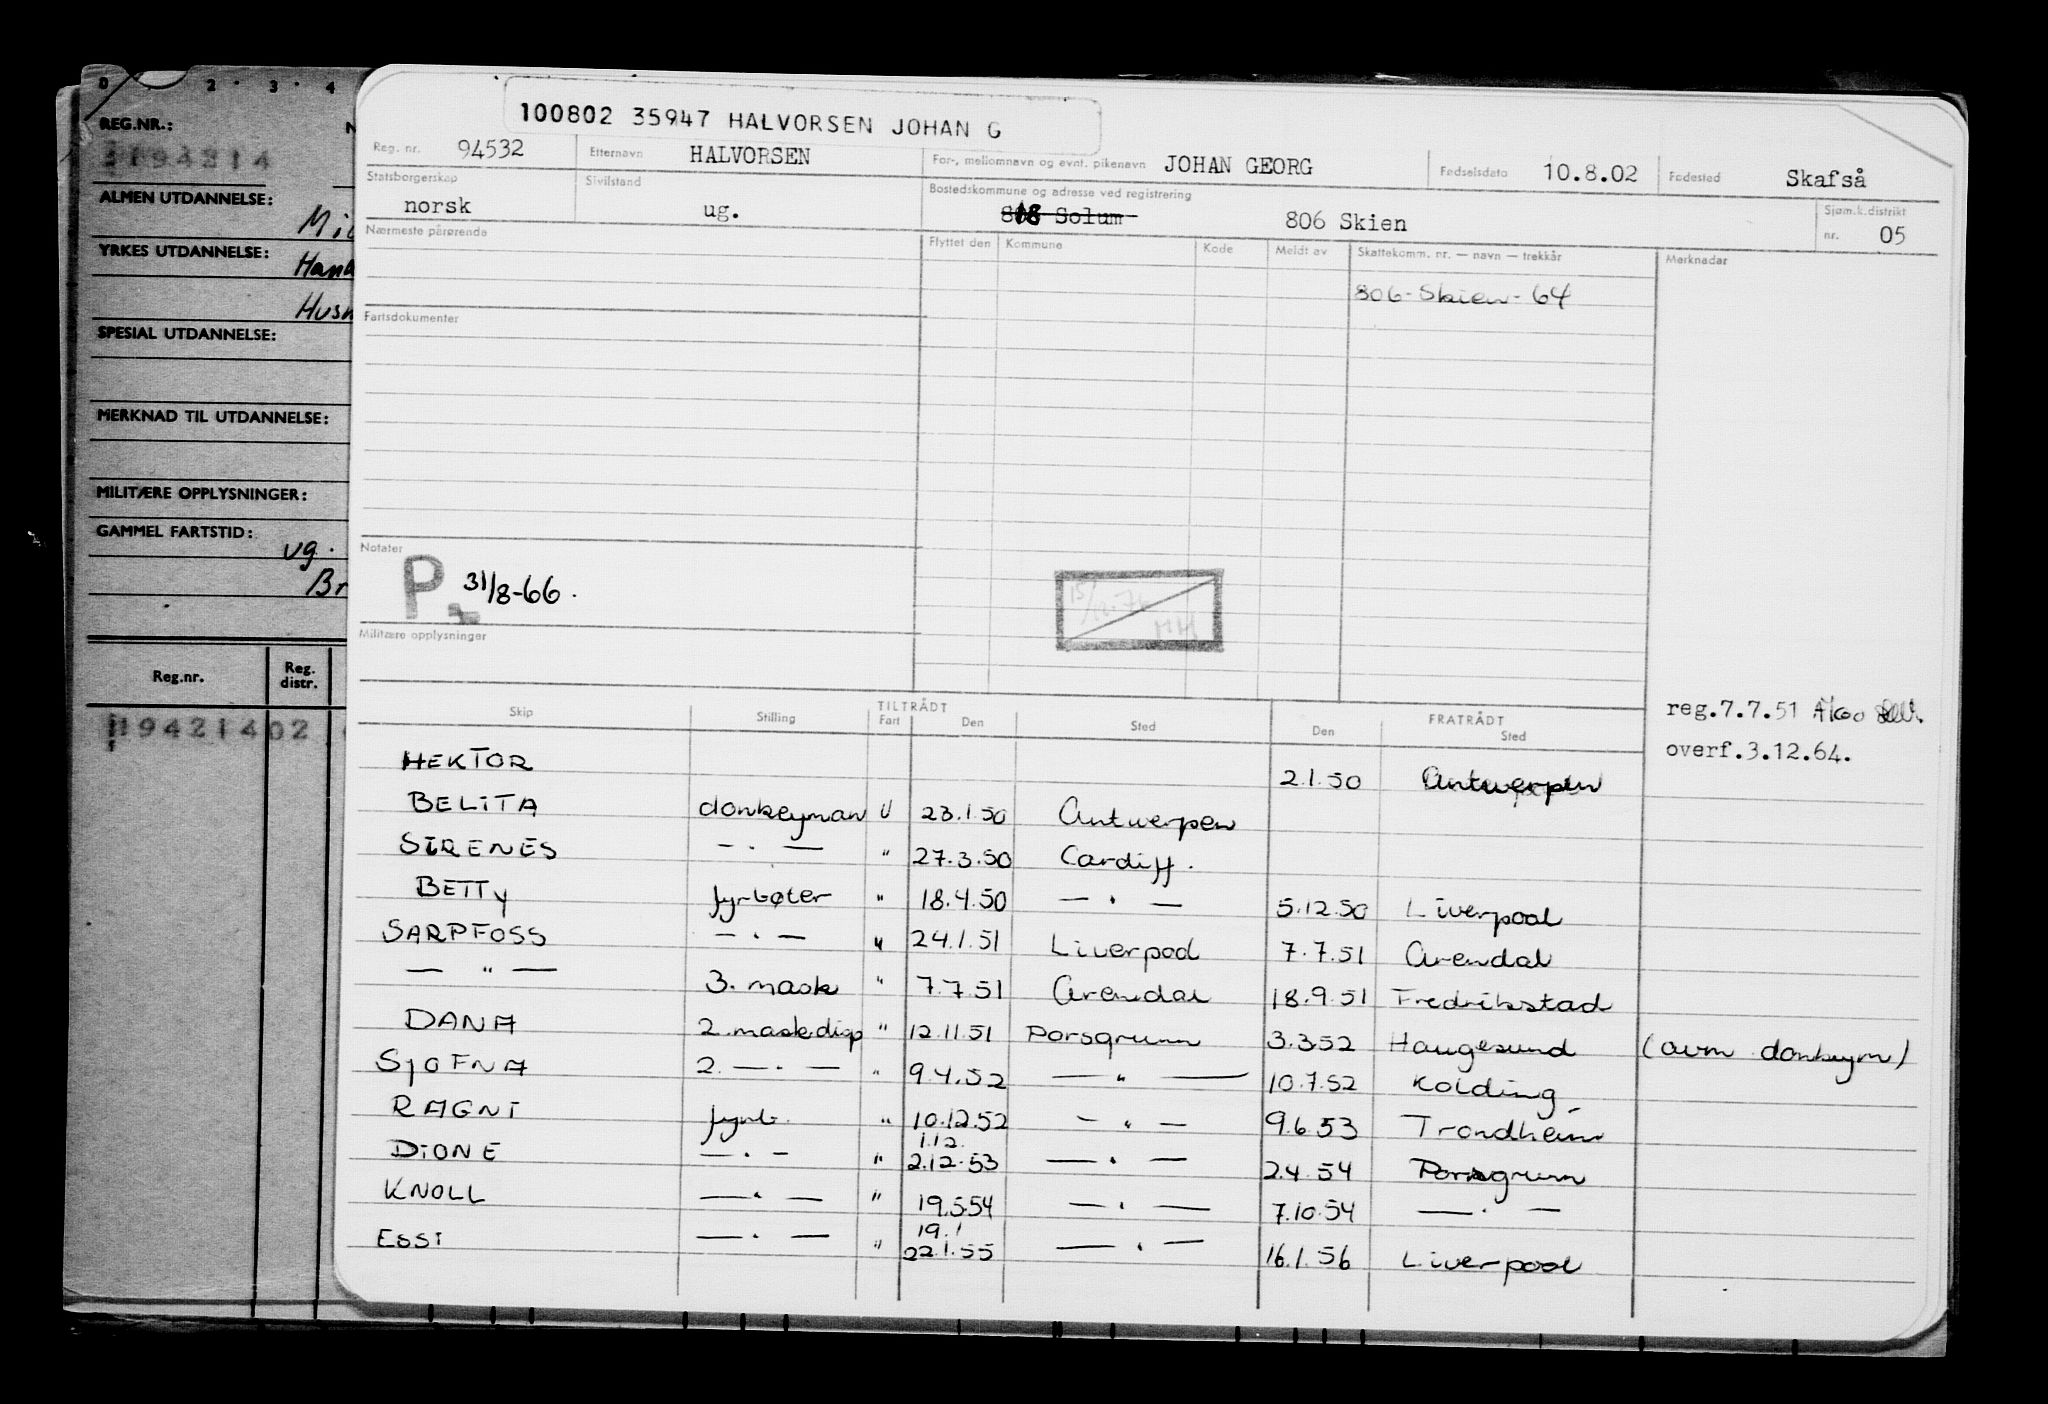 0 2 3 4
REG.NR.: N
3194214
ALMEN UTDANNELSE:
YRKES UTDANNELSE:
SPESIAL UTDANNELSE:
MERKNAD TIL UTDANNELSE:
MILITÆRE OPPLYSNINGER:
GAMMEL FARTSTID:
ug.
Br
Reg.nr. Reg. distr.
119421402
100802 35947 HALVORSEN JOHAN G
Reg. nr. 94532 Etternavn HALVORSEN For-, mellomnavn og evnt. pikenavn JOHAN GEORG Fødselsdato 10.8.02 Fødested Skafså
Statsborgerskap norsk Sivilstand ug. Bostedskommune og adresse ved registrering 818 Solum 806 Skien Sjøm.k.distrikt nr. 05
Nærmeste pårørende Flyttet den Kommune Kode Meldt av Skattekomm. nr. — navn — trekkår Merknader
806-Skien-64
Fartsdokumenter
Notater
P 31/8-66.
HH
Militære opplysninger
reg.7.7.51
overf.3.12.64.
Skip Stilling TILTRÅDT Fart Den Sted FRATRÅDT Den Sted
HEKTOR 2.1.50 Antwerpen
BELITA donkeyman U 23.1.50 Antwerpen
SIRENES — " — " 27.3.50 Cardiff.
BETTY fyrbøter " 18.4.50 — " — 5.12.50 Liverpool
SARPFOSS — " — " 24.1.51 Liverpool 7.7.51 Arendal
— " — 3. mask " 7.7.51 Arendal 18.9.51 Fredrikstad
DANA 2. mask.disp " 12.11.51 Porsgrunn 3.3.52 Haugesund (avm donkeym)
SJOFNA 2. — " — " 9.4.52 — " — 10.7.52 Kolding
RAGNI fyrb. " 10.12.52 — " — 9.6.53 Trondheim
DIONE — " — " 1.12. 2.12.53 — " — 2.4.54 Porsgrunn
KNOLL — " — " 19.5.54 — " — 7.10.54 — " —
ESSI — " — " 19.1 22.1.55 — " — 16.1.56 Liverpool